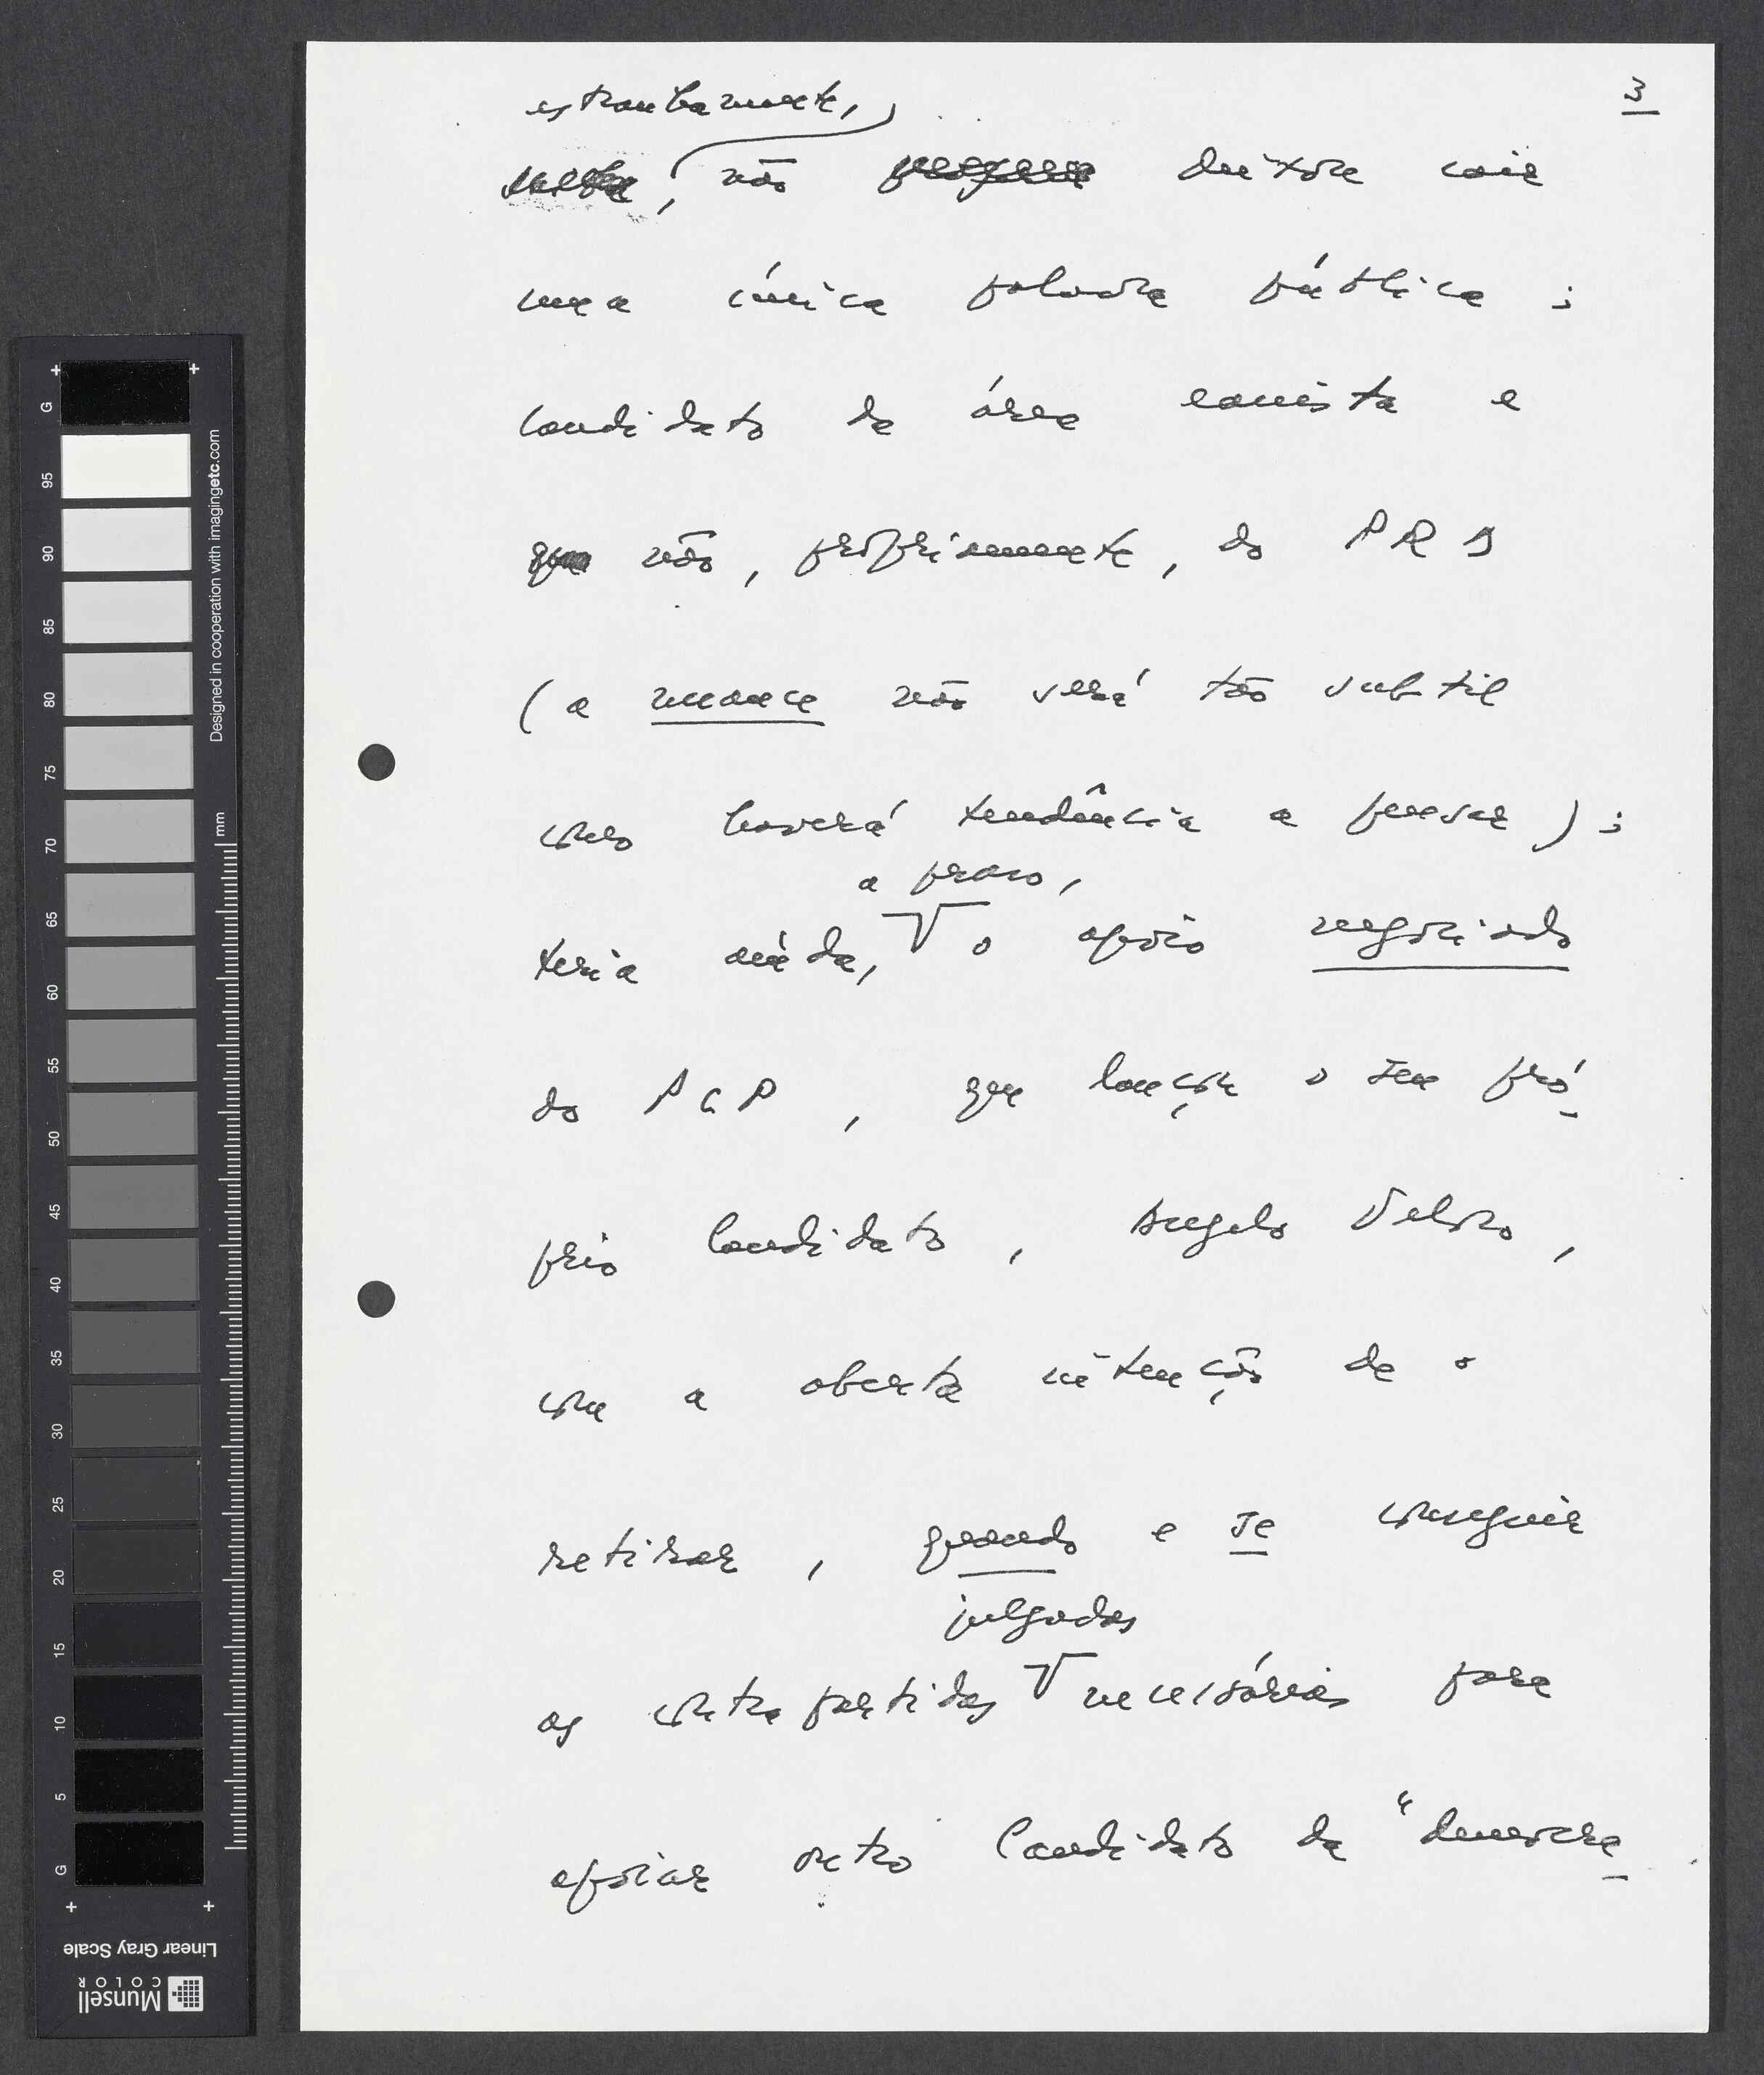 3
estranhamente,
, não deixou cair
uma única palavra pública;
candidato da área eanista e
não, propriamente, do PRD
(a nuance não será tão subtil
como haverá tendência a pensar);
a prazo,
teria ainda, o apoio negociado
do PCP, que lançou o seu pró-
prio candidato, Angelo Veloso,
com a aberta intenção de o
retirar, quando e se conseguir
julgadas
as contrapartidas necessárias para
apoiar outro candidato da "democra-
Designed in cooperation with imagingetc.com
mm
G
95
90
85
80
75
70
65
60
55
50
45
40
35
30
25
20
15
10
5
G
Linear Gray Scale
Munsell
COLOR